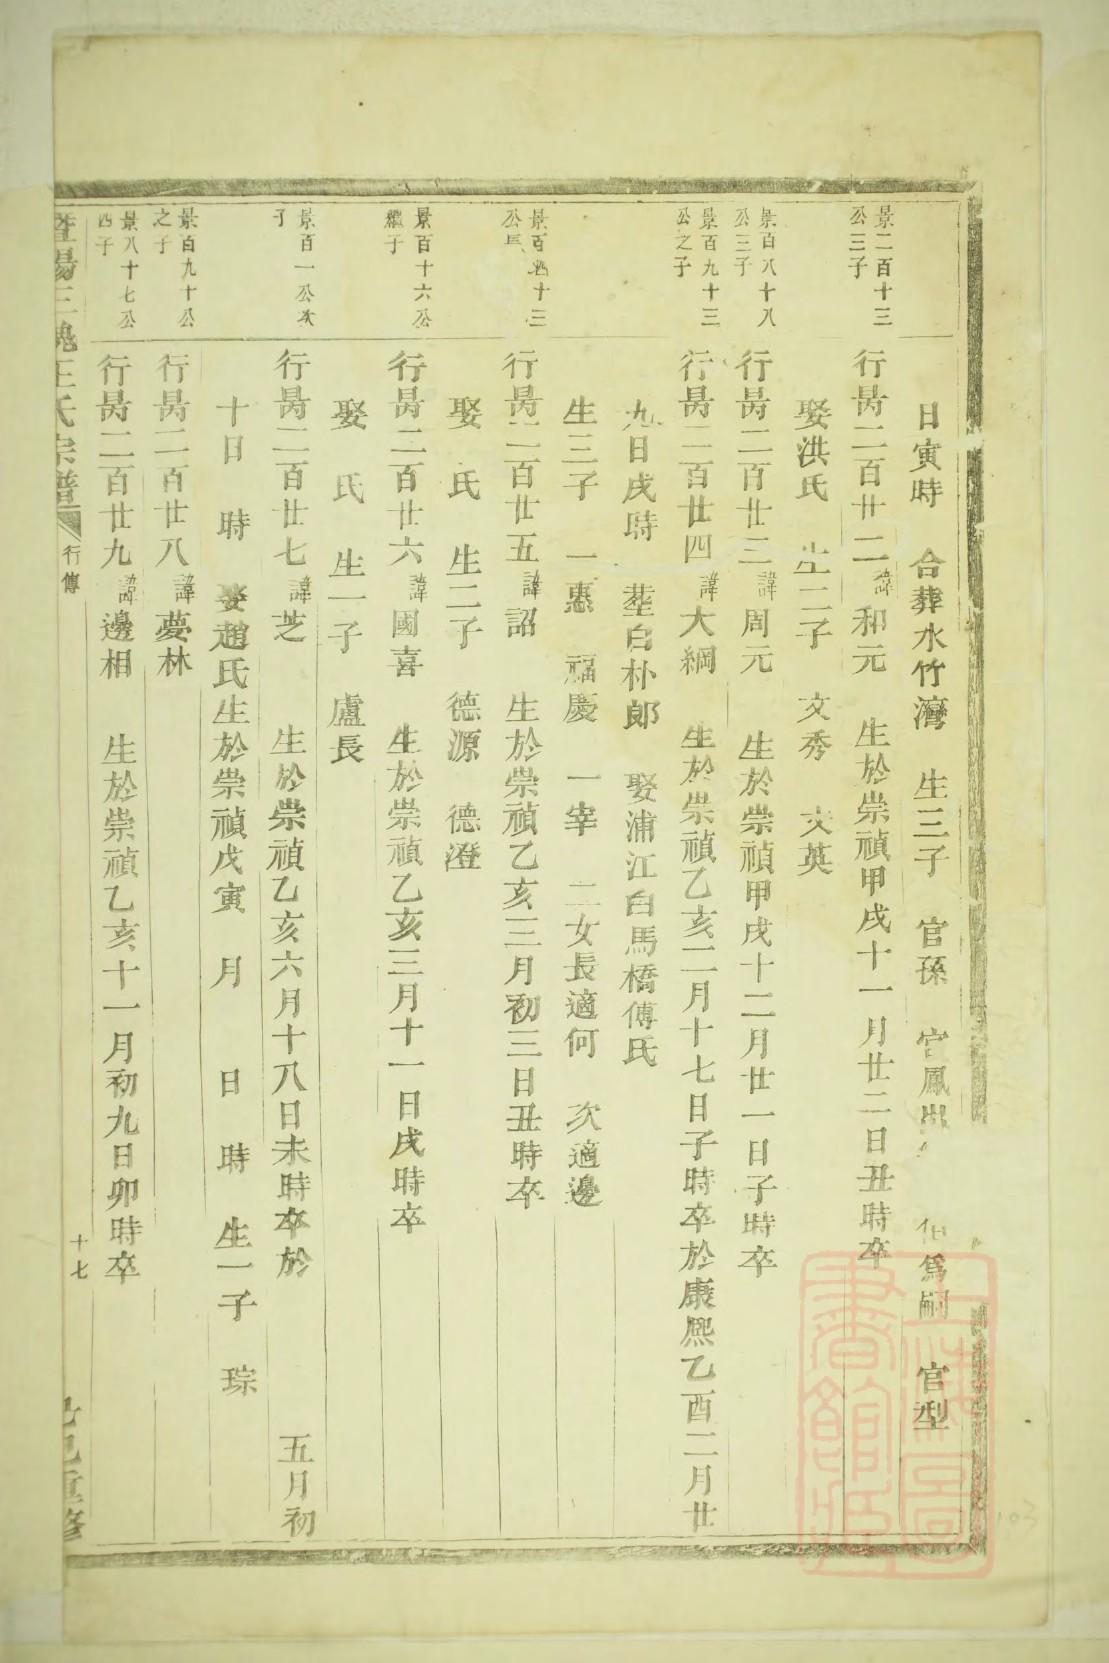 日寅時 合葬水竹灣 生三子 官孫 官鳳出 爲嗣 官型
景二百十三
公三子
行昺二百廿二 諱和元 生於崇禎甲戌十一月廿二日丑時卒
娶洪氏 生二子 文秀 文英
景百八十八
公三子
行昺二百廿三 諱周元 生於崇禎甲戌十二月廿一日子時卒
景百九十三
公之子
行昺二百廿四 諱大綱 生於崇禎乙亥二月十七日子時卒於康熙乙酉二月廿
九日戌時 塟白朴郞 娶浦江白馬橋傅氏
生三子 一惠 福慶 一宰 二女長適何 次適邊
景百四十三
公長
行昺二百廿五 諱詔 生於崇禎乙亥三月初三日丑時卒
娶 氏 生二子 德源 德澄
景百十六公
繼子
行昺二百廿六 諱國喜 生於崇禎乙亥三月十一日戌時卒
娶 氏 生一子 盧長
景百一公次
子
行昺二百廿七 諱芝 生於崇禎乙亥六月十八日未時卒於 五月初
十日 時 娶趙氏生於崇禎戊寅 月 日 時 生一子 琮
景百九十公
之子
行昺二百廿八 諱夢林
景八十七公
四子
行昺二百廿九 諱邊相 生於崇禎乙亥十一月初九日卯時卒
暨陽三槐王氏宗譜 行傳 十七 己巳重修
上海圖書館藏
103